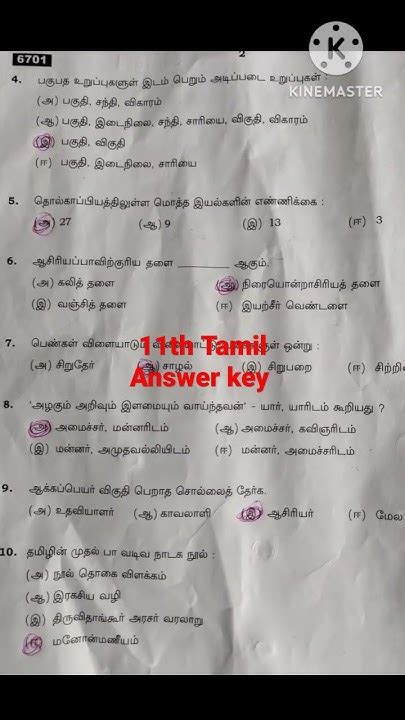 6701
2
KINEMASTER
4. பகுபத உறுப்புகளுள் இடம் பெறும் அடிப்படை உறுப்புகள் :
(அ) பகுதி, சந்தி, விகாரம்
(ஆ) பகுதி, இடைநிலை, சந்தி, சாரியை, விகுதி, விகாரம்
(இ) பகுதி, விகுதி
(ஈ) பகுதி, இடைநிலை, சாரியை
5. தொல்காப்பியத்திலுள்ள மொத்த இயல்களின் எண்ணிக்கை :
(அ) 27 (ஆ) 9 (இ) 13 (ஈ) 3
6. ஆசிரியப்பாவிற்குரிய தளை ________ ஆகும்.
(அ) கலித் தளை (ஆ) நிரையொன்றாசிரியத் தளை
(இ) வஞ்சித் தளை (ஈ) இயற்சீர் வெண்டளை
7 பெண்கள் விளையாடும் ஒன்று :
11th Tamil
(அ) சிறுதேர் (ஆ) சாழல் (இ) சிறுபறை (ஈ)
Answer key
8. 'அழகும் அறிவும் இளமையும் வாய்ந்தவன்' - யார், யாரிடம் கூறியது ?
(அ) அமைச்சர், மன்னரிடம் (ஆ) அமைச்சர், கவிஞரிடம்
(இ) மன்னர், அமுதவல்லியிடம் (ஈ) மன்னர், அமைச்சரிடம்
9. ஆக்கப்பெயர் விகுதி பெறாத சொல்லைத் தேர்க.
(அ) உதவியாளர் (ஆ) காவலாளி (இ) ஆசிரியர் (ஈ)
10. தமிழின் முதல் பா வடிவ நாடக நூல் :
(அ) நூல் தொகை விளக்கம்
(ஆ) இரகசிய வழி
(இ) திருவிதாங்கூர் அரசர் வரலாறு
(ஈ) மனோன்மணீயம்